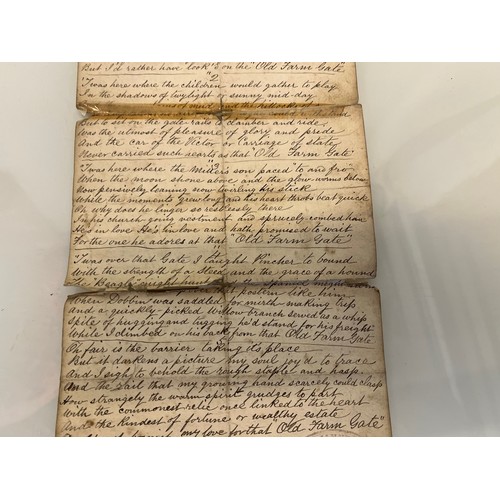 But I'd rather have "look'd on the "Old Farm Gate"
"2
'Twas here where the children would gather to play
In the shadows of twylight or sunny mid-day
But to sit on the gate rails to clamber and ride
Was the utmost of pleasure of glory and pride
And the car of the Victor or Carriage of state
Never carried such hearts as that "Old Farm Gate"
"3
'Twas here where the Miller's son paced to and fro
When the moon shone above and the glow worms below
Now pensively leaning now twirling his stick
While the moments grew long and his heart throbs beat quick
Oh why does he linger so restlessly there
In his church going vestment and sprucely combed hair
He's in love He's in love and hath promised to wait
For the one he adores at that "Old Farm Gate"
'Twas over that Gate I taught Pincher to bound
With the strength of a Steed and the grace of a hound
The Beagle might hunt the Spaniel might
postern like him
When Dobbin was saddled for mirth making trips
and a quickly picked Willow branch served us a whip
Spite of hugging and lugging he'd stand for his freight
While I climbed on his back from that "Old Farm Gate
Oh fair is the barrier taking its place
But it darkens a picture my soul joy'd to trace
And I sigh to behold the rough staple and hasp
And the rail that my growing hand scarcely could clasp
How strangely the warm spirit grudges to part
With the commonest relic once linked to the heart
And the kindest of fortune or wealthy estate
my love for that "Old Farm Gate"